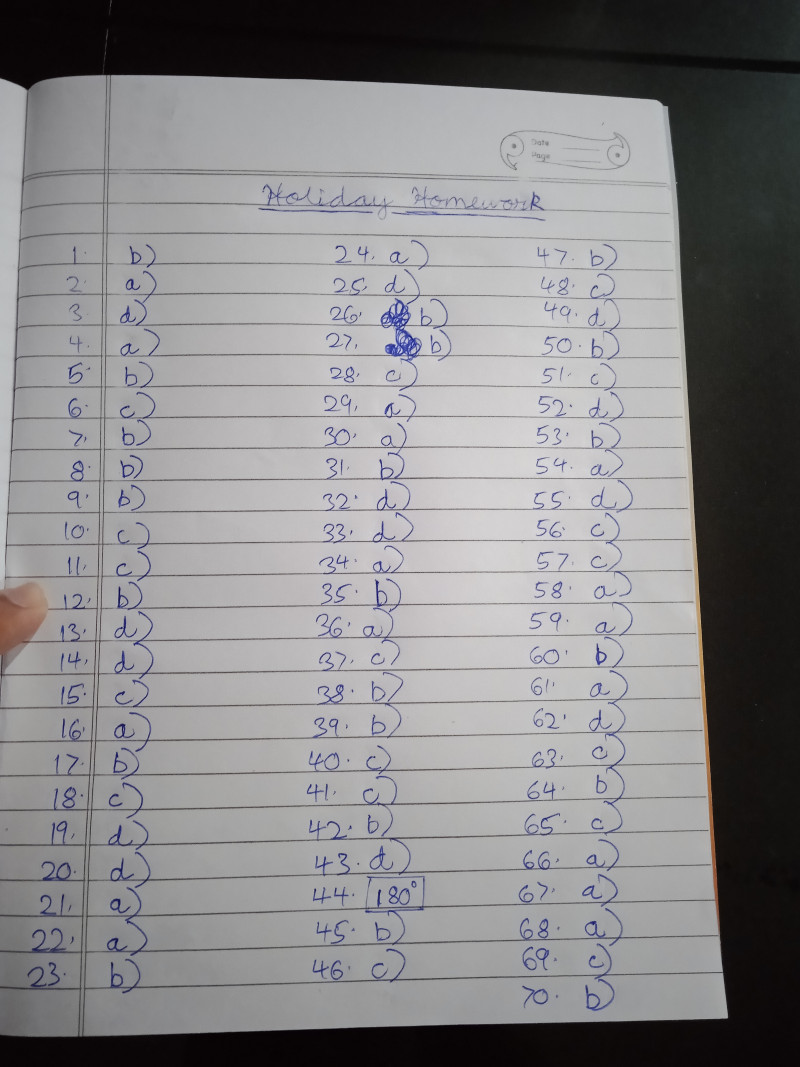 Date
Page
Holiday Homework
1. b)
2. a)
3. d)
4. a)
5. b)
6. c)
7. b)
8. b)
9. b)
10. c)
11. c)
12. b)
13. d)
14. d)
15. c)
16. a)
17. b)
18. c)
19. d)
20. d)
21. a)
22. a)
23. b)
24. a)
25. d)
26. b)
27. b)
28. c)
29. a)
30. a)
31. b)
32. d)
33. d)
34. a)
35. b)
36. a)
37. c)
38. b)
39. b)
40. c)
41. c)
42. b)
43. d)
44. 180°
45. b)
46. c)
47. b)
48. c)
49. d)
50. b)
51. c)
52. d)
53. b)
54. a)
55. d)
56. c)
57. c)
58. a)
59. a)
60. b)
61. a)
62. d)
63. c)
64. b)
65. c)
66. a)
67. a)
68. a)
69. c)
70. b)